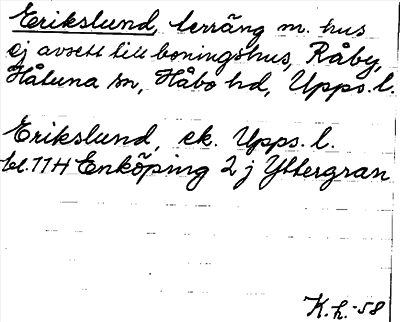 Erikslund, terräng m. hus
ej avsett till boningshus, Råby,
Håtuna sn, Håbo hd, Upps. l.
Erikslund, ek. Upps. l.
bl. 11H Enköping 2 j Yttergran
K.h. -58